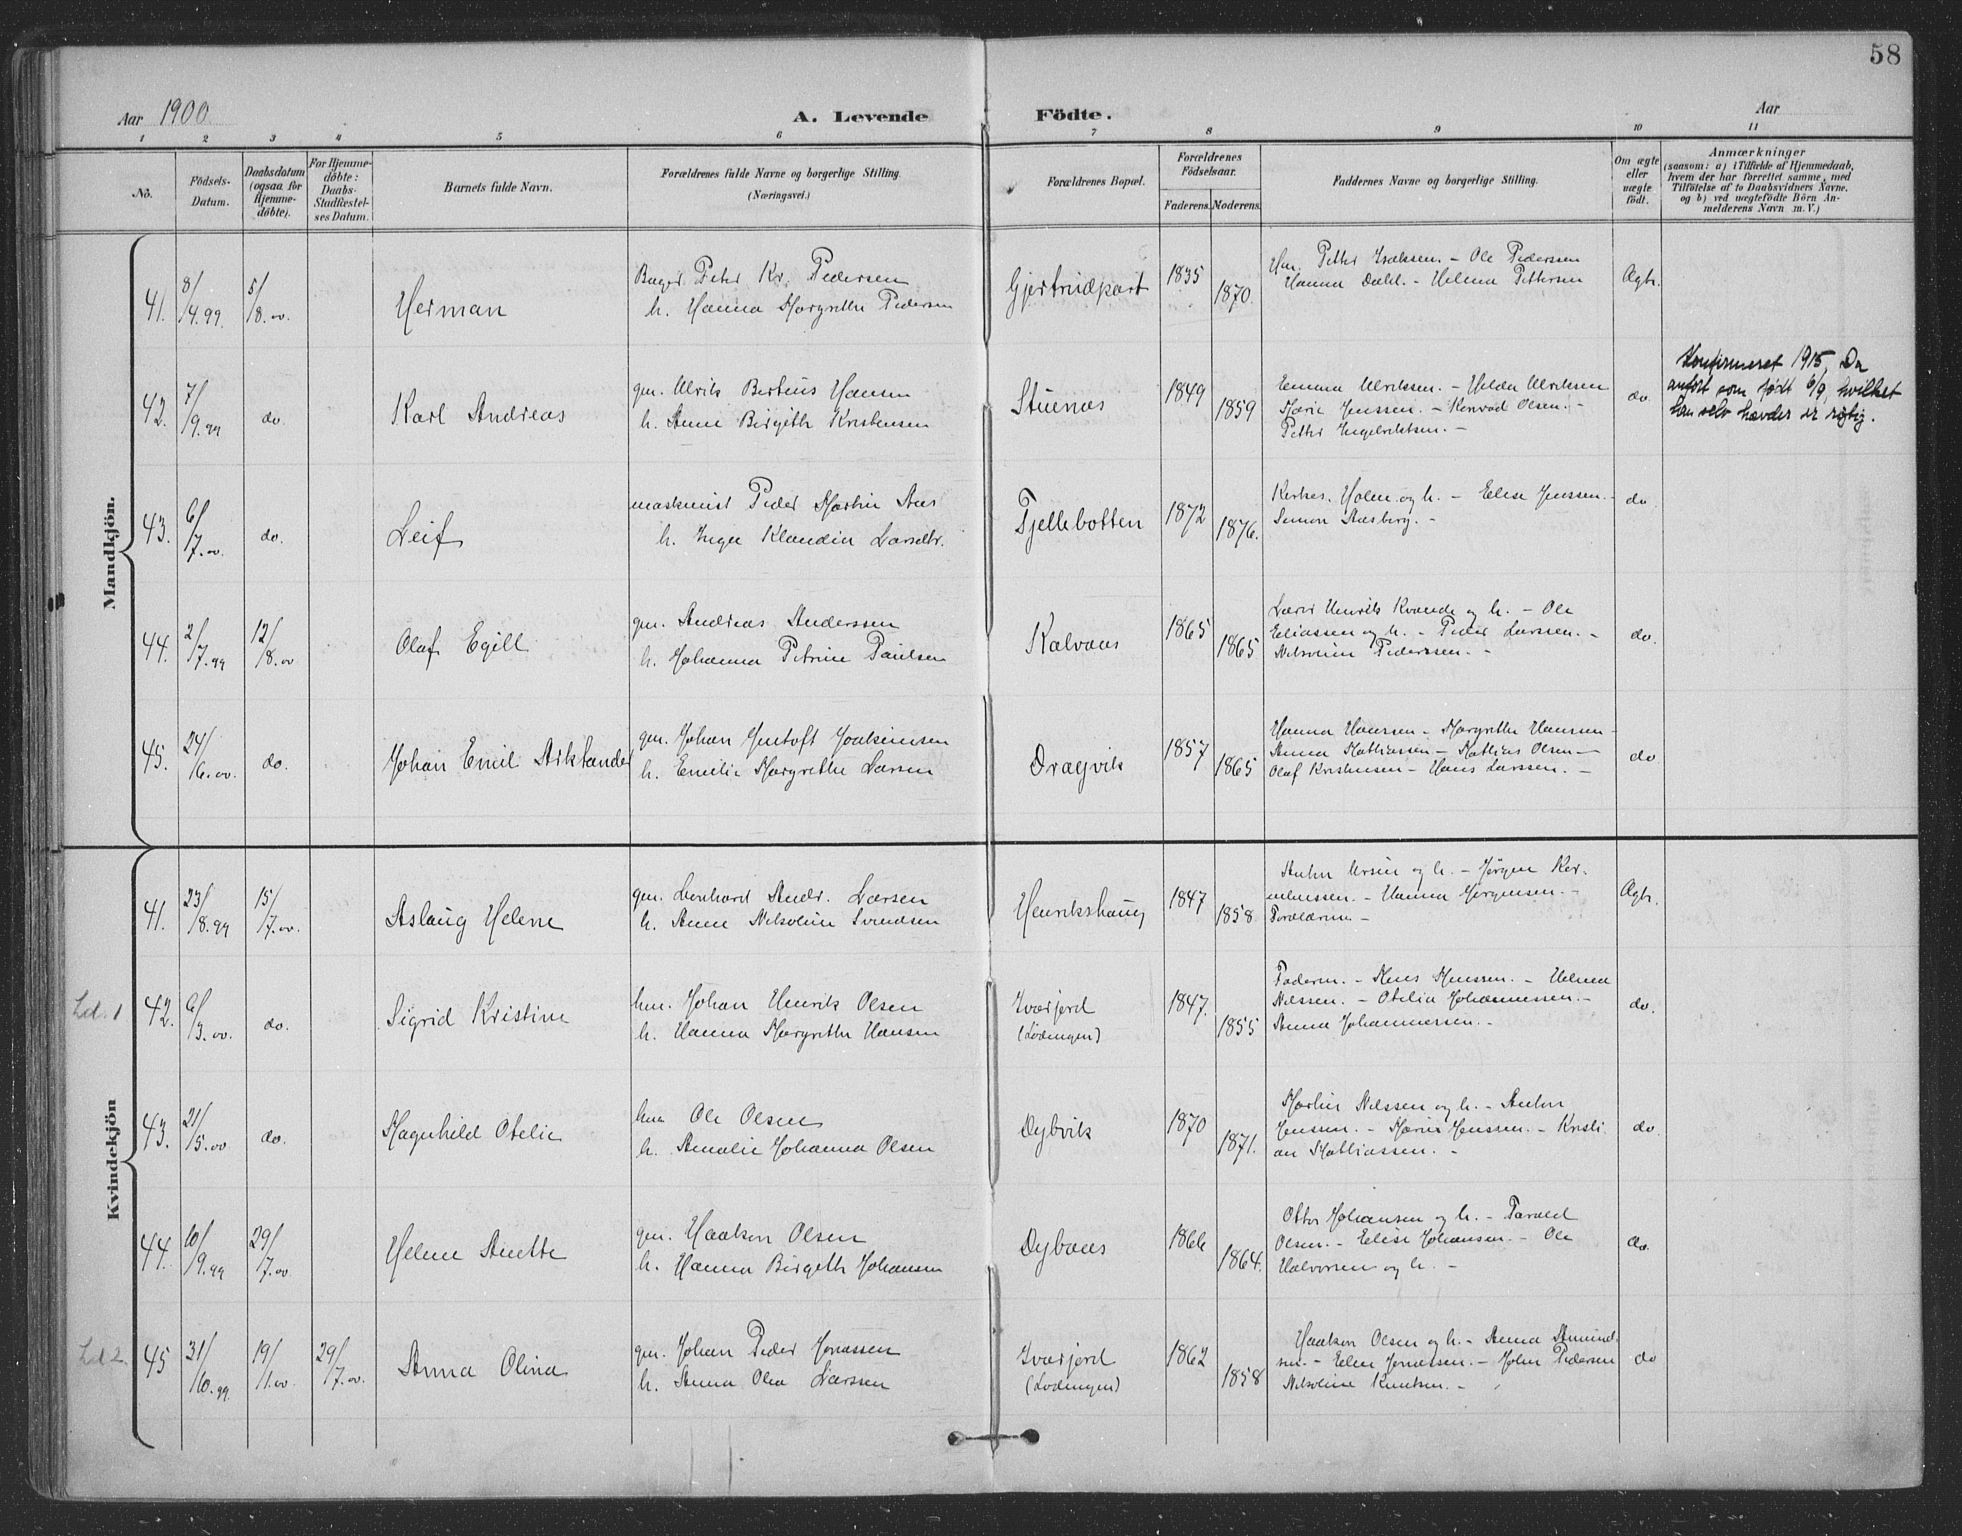 58
Aar 1900
A. Levende
Födte.
Aar
1 2 3 4 5 6 7 8 9 10 11
No.
Födsels-
Datum.
Daabsdatum
(ogsaa for
Hjemme-
döbte).
For Hjemme-
döbte:
Daabs-
Stadfæstel-
ses Datum.
Barnets fulde Navn.
Forældrenes fulde Navne og borgerlige Stilling.
(Næringsvei.)
Forældrenes Bopæl.
Forældrenes
Födselsaar.
Faderens. Moderens.
Faddernes Navne og borgerlige Stilling.
Om ægte
eller
uægte
födt.
Anmærkninger
(saasom: a) i Tilfælde af Hjemmedaab,
hvem der har forrettet samme, med
Tilföielse af to Daabsvidners Navne.
og b) ved uægtefödte Börn An-
melderens Navn m. V.)
Mandkjön.
41. 8/4.99. 5/8.00 Herman
Peter Kr. Pedersen
h. Hanna Margrethe Pedersen
Gjertrudpart 1835 1870.
Petter Isaksen. - Ole Pedersen
Hanna Dahl. - Helena Pettersen
Ægte.
42. 7/9.99 do. Karl Andreas
gm. Ulrik Bertius Hansen
h. Anne Birgith Kristensen
Stuenes 1849 1859
Emma Ulriksen. - Helda Ulriksen
Marie Jenssen. - Konrad Olsen. -
Petter Ingebriktsen. -
do.
Konfirmeret 1915. Da
anført som født 6/9, hvilket
han selv hævder er rigtig.
43. 6/7.00. do. Leif
maskinist Peder Martin Aas
h. Inga Klaudia Larsdtr.
Fjellebotten 1872 1876.
Holm og h. - Elise Jenssen. -
Simon Aasberg. -
do
44. 2/7.99 12/8.00 Olaf Egill
gm. Andreas Anderssen
h. Johanna Petrine Paulsen
Kalvaas 1865 1865
Lærer Henrik Kvande og h. - Ole
Eliassen og h. - Peder Larssen. -
Nikoline Pederssen. -
do.
45. 24/6.00. do. Johan Emil Arklander
gm. Johan Gustoft Joakimsen
h. Emilie Margrethe Larsen
Dragvik 1857 1865
Hanna Hanssen - Margrethe Hanssen -
Anna Mathiassen - Mathias Olsen -
Olaf Kristensen - Hans Larssen. -
do
Kvindekjön
41. 23/8.99 15/7.00. Aslaug Helene
gm. Lenhard Andr. Larsen
h. Anne Nikoline Svendsen
Henrikshaug 1847 1858
Ursin og h. - Jørgen Kor-
neliussen. - Hanna Jørgensen. -
Forældrene. -
Ægte.
Ld. 1
42. 6/3.00. do. Sigrid Kristine
hm. Johan Henrik Olsen
h. Hanna Margrethe Hansen
Ivarjord
(Lødingen)
1847. 1855
Faderen. - Hans Hanssen. - Helma
Nilssen. - Otelia Johannessen. -
Anna Johannessen. -
do.
43. 21/5.00 do. Magnhild Otelie
hm Ole Olsen
h. Amalie Johanna Olsen
Dybvik 1870 1871.
Martin Nilssen og h. - Anton
Jenssen. - Marie Jenssen. - Kristi-
an Mathiassen. -
do.
44. 10/9.99 29/7.00. Helene Anette
gm. Haakon Olsen
h. Hanna Birgeth Johansen
Dybaas 1866 1864.
Otto Johansen og h. - Farald
Olsen. - Elise Johansen. - Ole
Halvorsen og h. -
do.
Ld 2.
45 31/10.99 19/11.00 29/7.00. Anna Olina
gm. Johan Peder Jonassen
h. Anna Olea Larssen
Ivarjord
(Lødingen)
1862 1858
Haakon Olsen og h. - Anna Amund-
sen. - Elen Jonassen. - John Pedersen
Nikoline Knutsen. -
do